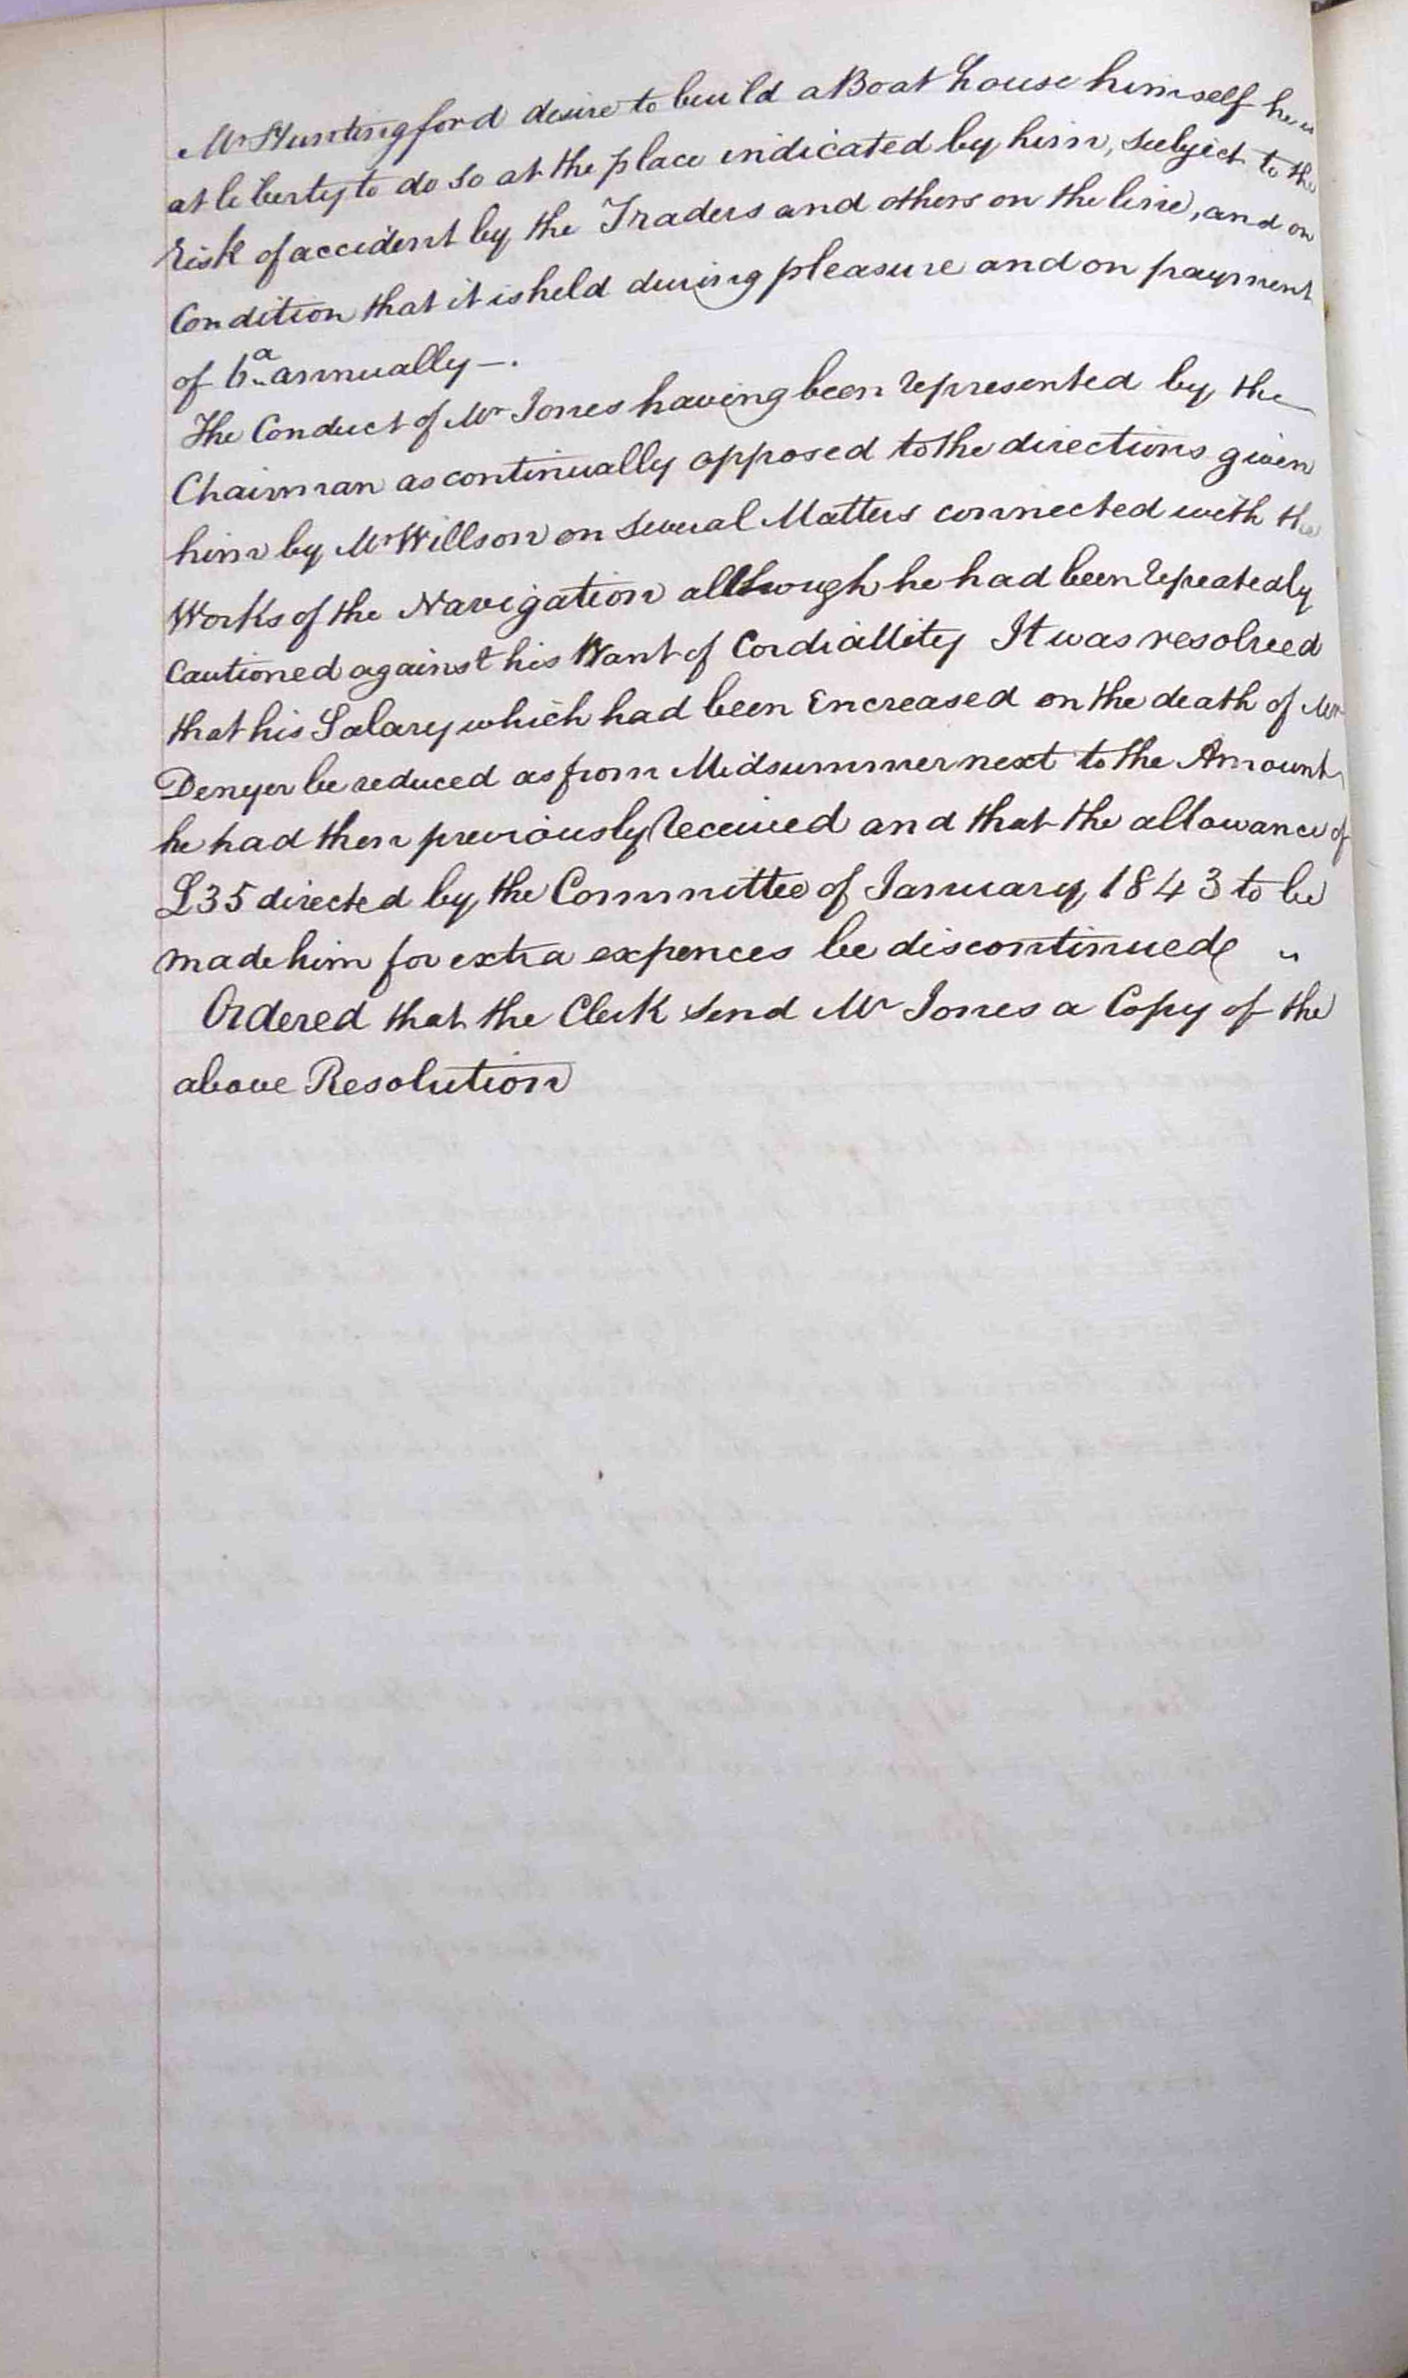 Mr Huntingford desire to build a Boat house himself he is
at liberty to do so at the place indicated by him, subject to the
risk of accident by the Traders and others on the line, and on
Condition that it is held during pleasure and on payment
of annually —.
The Conduct of Mr Jones having been represented by the
Chairman as continually opposed to the directions given
him by Mr Willson on several Matters connected with the
Works of the Navigation although he had been repeatedly
Cautioned against his Want of Cordiallity It was resolved
that his Salary which had been Encreased on the death of Mr
Denyer be reduced as from Midsummer next to the Amount
he had then previously received and that the allowance of
£35 directed by the Committee of January 1843 to be
made him for extra expences be discontinued "
Ordered that the Clerk send Mr Jones a Copy of the
above Resolution